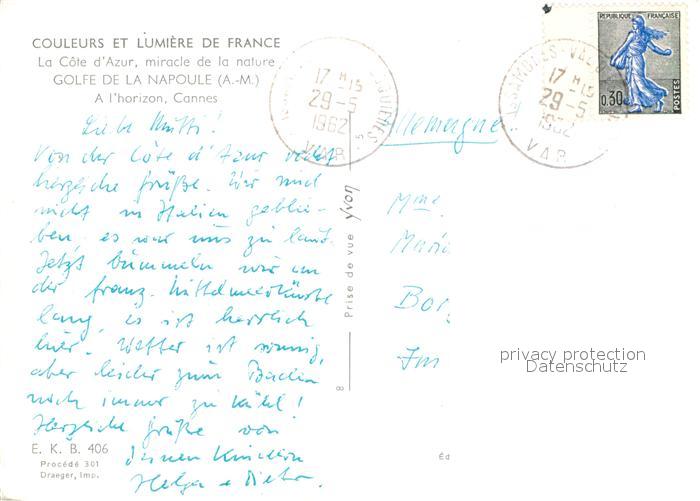 COULEURS ET LUMIÈRE DE FRANCE
La Côte d'Azur, miracle de la nature
GOLFE DE LA NAPOULE (A.-M.)
A l'horizon, Cannes
Liebe Mutti!
Von der Côte d'Azur recht
herzliche Grüße. Wir sind
nicht in Italien geblie-
ben, es war uns zu laut.
Jetzt bummeln wir an
der franz. Mittelmeerküste
lang, es ist herrlich
hier. Wetter ist sonnig,
aber leider zum Baden
noch immer zu kühl!
Herzliche Grüße von
Deinen Kindern
Helga + Dieter.
E. K. B. 406
Procédé 301
Draeger, Imp.
17 H 15
29-5
1962
VAR
Prise de vue yvon
8
5
Allemagne
Mme
Maria
Bor
Im
Éd
REPUBLIQUE FRANÇAISE
0,30
POSTES
17 H 15
29-5
1962
VAR
privacy protection
Datenschutz